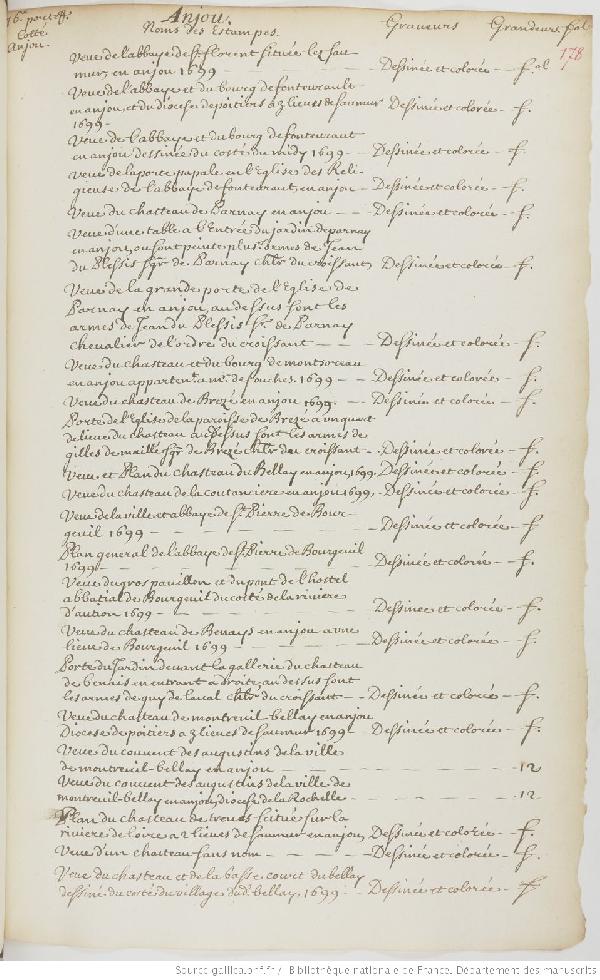 16.e portef.
Cotté
Anjou.
Anjou.
Noms des Estampes. Graveurs Grandeurs fol
178
Veüe de l'abbaye de St florent située lez sau
mur, en anjou 1699 — Dessinée et colorée — f. ol
Veüe de l'abbaye et du bourg de fonteurault
en anjou, et du diocese de poitiers a 3 lieües de saumur Dessinée et colorée — f.
1699 —
Veüe de l'abbaye et du bourg de fonteuraut
en anjou dessinée du costé du midy 1699 — Dessinée et colorée — f.
veüe de la porte papale en l'Eglise des Reli-
gieuse de l'abbaye de fonteuraut, en anjou — Dessinée et colorée — f.
Veüe du chasteau de Parnay en anjou — Dessinée et colorée — f.
Veüe d'une table a l'Entrée du jardin de parnay
en anjou, ou sont peints plus.rs armes de Jean
du Plessis sgr. de Parnay chlr du croissant, Dessinée et colorée — f.
Veüe de la grande porte de l'Eglise de
Parnay en anjou, au dessus sont les
armes de Jean du Plessis sr. de Parnay
chevalier de l'ordre du croissant — Dessinée et colorée — f.
Veüe du chasteau et du bourg de montsoreau
en anjou apparten.t a mr. de fouches. 1699 — Dessinée et colorée — f.
Veüe du chasteau de Brezé en anjou 1699. — Dessinée et colorée — f.
Porte de l'Eglise de la paroisse de Brezé a un quart
de lieüe du chasteau au dessus sont les armes de
gilles de maillé sgr. de Brezé chlr du croissant — Dessinée et colorée — f.
Veüe et Plan du chasteau du Bellay en anjou, 1699, Dessinée et colorée — f.
Veüe du chasteau de la coutanciere en anjou 1699, — Dessinée et colorée — f.
Veüe de la ville et abbaye de St. Pierre de Bour-
geuil 1699 — Dessinée et colorée — f.
Plan general de l'abbaye de St. Pierre de Bourgeuil
1699 — Dessinée et colorée — f.
Veüe du gros pauillon et du pont de l'hostel
abbatial de Bourgeuil du costé de la riviere
d'aution 1699 — Dessinée et colorée — f.
Veüe du chasteau de Benays en anjou a vne
lieüe de Bourgeuil 1699 — Dessinée et colorée — f.
Porte du Jardin deuant la gallerie du chasteau
de benais en entrant a droite, au dessus sont
les armes de guy de laual chlr du croissant — Dessinée et colorée — f.
Veüe du chasteau de montreuil-bellay en anjou
Diocese de poitiers a 3 lieües de saumur 1699 — Dessinée et colorée — f.
Veüe du couuent des augustins de la ville
de montreuil-bellay en anjou — 12
Veüe du couuent des augustins de la ville de
montreuil-bellay en anjou, diocese de la Rochelle — 12
Plan du chasteau de treues scitué sur la
riviere de loire a 2 lieües de saumur en anjou, Dessinée et colorée — f.
Veüe d'un chasteau sans nom — Dessinée et colorée — f.
Veüe du chasteau et de la basse court du bellay
dessiné du costé du village dud. bellay, 1699 — Dessinée et colorée — f.
Source gallica.bnf.fr / Bibliothèque nationale de France. Département des manuscrits